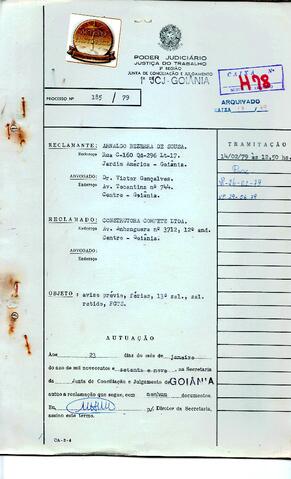 PODER JUDICIÁRIO
JUSTIÇA DO TRABALHO
3ª REGIÃO
JUNTA DE CONCILIAÇÃO E JULGAMENTO
1ª JCJ - GOIÂNIA
CAIXA Nº
H98
ARQUIVADO
CAIXA
PROCESSO Nº 185 / 79
RECLAMANTE: ARNALDO BEZERRA DE SOUSA.
Endereço Rua C-160 Qd-296 Lt-17.
Jardim América - Goiânia.
ADVOGADO: Dr. Victor Gonçalves.
Endereço Av. Tocantins nº 744.
Centro - Goiânia.
RECLAMADO: CONSTRUTORA COMPETE LTDA.
Endereço Av. Anhanguera nº 3712, 12º and.
Centro - Goiânia.
ADVOGADO:
Endereço
OBJETO: aviso prévio, férias, 13º sal., sal.
retido, FGTS.
TRAMITAÇÃO
14/02/79 às 12,50 hs.
AUTUAÇÃO
Aos 23 dias do mês de janeiro
do ano de mil novecentos e setenta e nove na Secretaria
da Junta de Conciliação e Julgamento de GOIÂNIA
autuo a reclamação que segue, com nenhum documentos.
Eu, p/ Diretor da Secretaria,
assino este termo.
CA-2-4